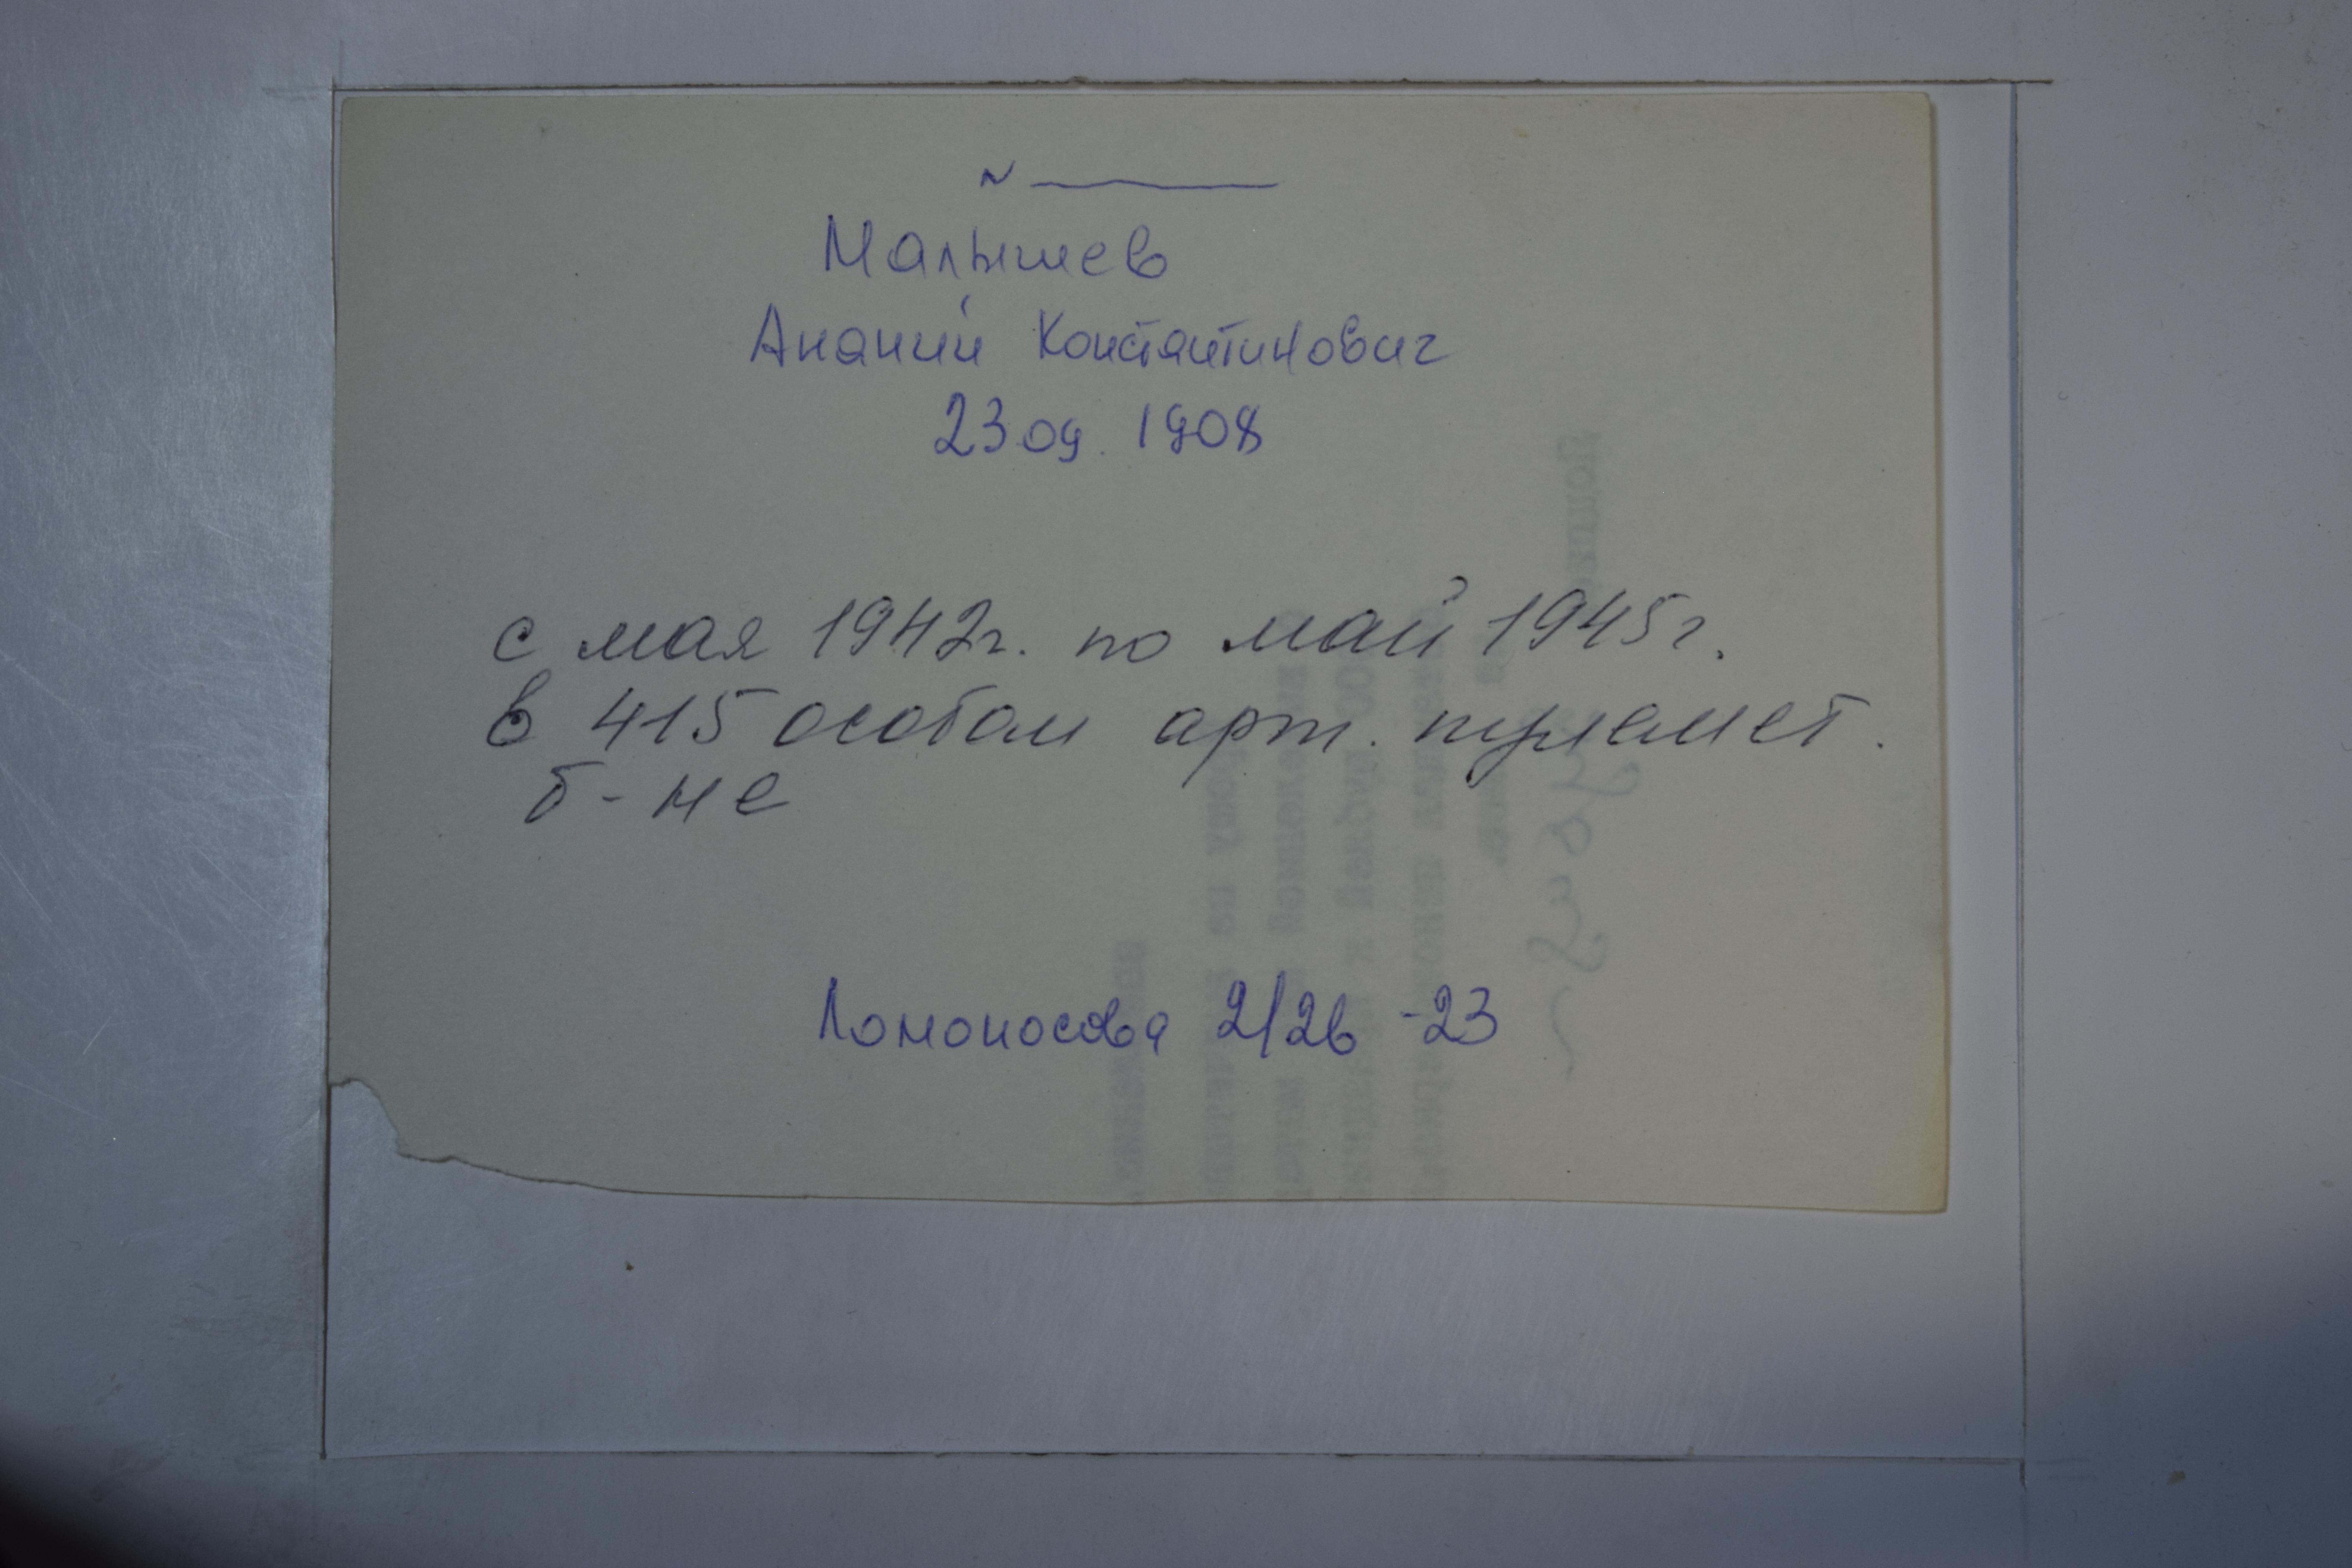 N ———
Малышев
Ананий Константинович
23 09. 1908
с мая 1942г. по май 1945г.
в 415 особом арт. пулемет.
б-не
Ломоносова 2/26 -23